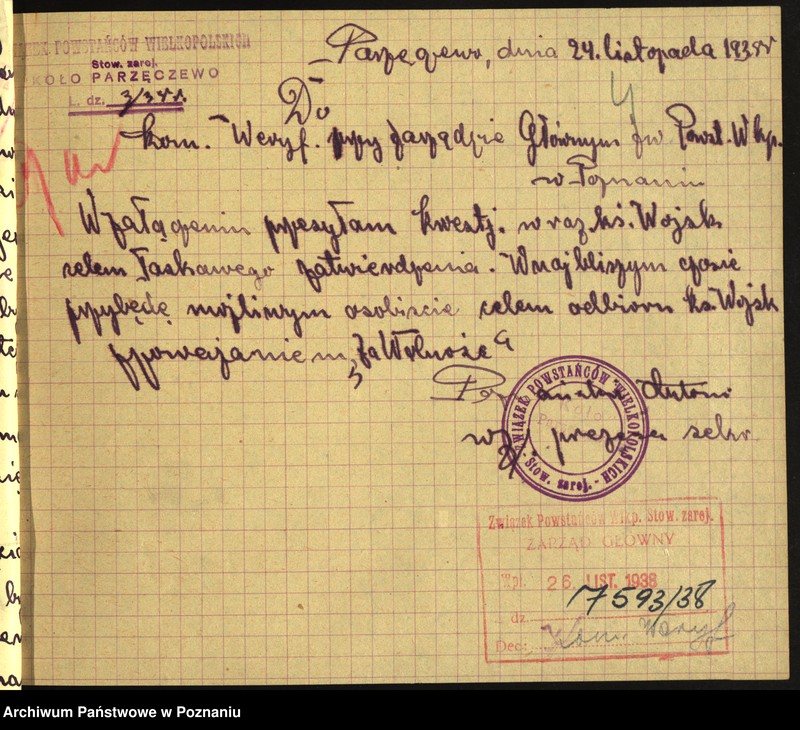 ZWIĄZEK POWSTAŃCÓW WIELKOPOLSKICH
Stow. zarej.
KOŁO PARZĘCZEWO
L. dz. 3/38 r.
Parzęczewo, dnia 24. listopada 1938 r
Do
Kom. Weryf. przy Zarządzie Głównym Zw. Powst. Wkp.
w Poznaniu
W załączeniu przesyłam kwestj. wraz ks. Wojsk.
celem łaskawego zatwierdzenia. W najbliższym czasie
przybędę możliwym osobiście celem odbioru ks. Wojsk
Za Wolność
Antoni
prezesa sekr.
ZWIĄZEK POWSTAŃCÓW WIELKOPOLSKICH
Stow. zarej.
Związek Powstańców Wlkp. Stow. zarej.
ZARZĄD GŁÓWNY
Wpł. 26. LIST. 1938
L. dz. 7593/38
Dec: Kom. Weryf
Archiwum Państwowe w Poznaniu